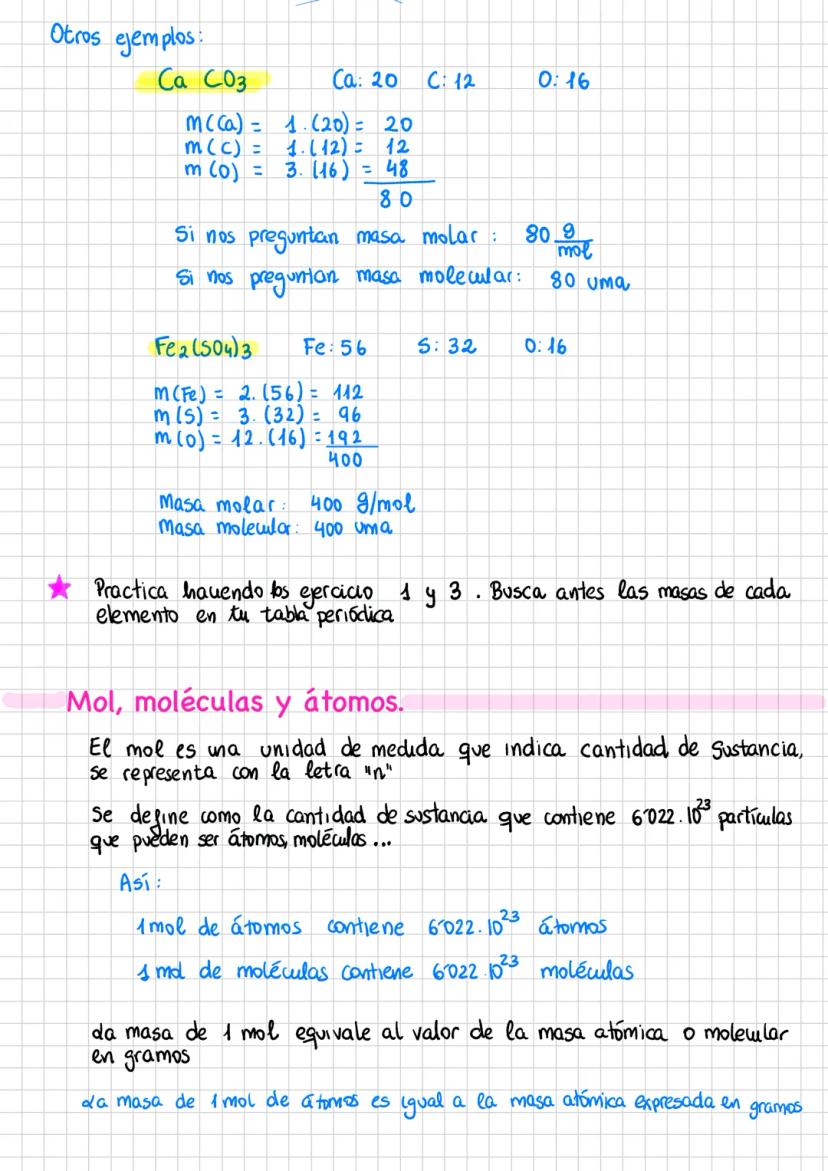 Otros ejemplos:
Ca CO3 Ca: 20 C: 12 O: 16
m(Ca) = 1.(20) = 20
m(C) = 1.(12) = 12
m(O) = 3.(16) = 48
80
Si nos preguntan masa molar: 80 g/mol
Si nos preguntan masa molecular: 80 uma
Fe2(SO4)3 Fe: 56 S: 32 O: 16
m(Fe) = 2.(56) = 112
m(S) = 3.(32) = 96
m(O) = 12.(16) = 192
400
Masa molar: 400 g/mol
Masa molecular: 400 uma
Practica haciendo los ejercicio 1 y 3. Busca antes las masas de cada
elemento en tu tabla periódica
Mol, moléculas y átomos.
El mol es una unidad de medida que indica cantidad de sustancia,
se representa con la letra "n"
Se define como la cantidad de sustancia que contiene 6'022.10²³ partículas
que pueden ser átomos, moléculas...
Así:
1 mol de átomos contiene 6'022.10²³ átomos
1 mol de moléculas contiene 6'022.10²³ moléculas
La masa de 1 mol equivale al valor de la masa atómica o molecular
en gramos
La masa de 1 mol de átomos es igual a la masa atómica expresada en gramos